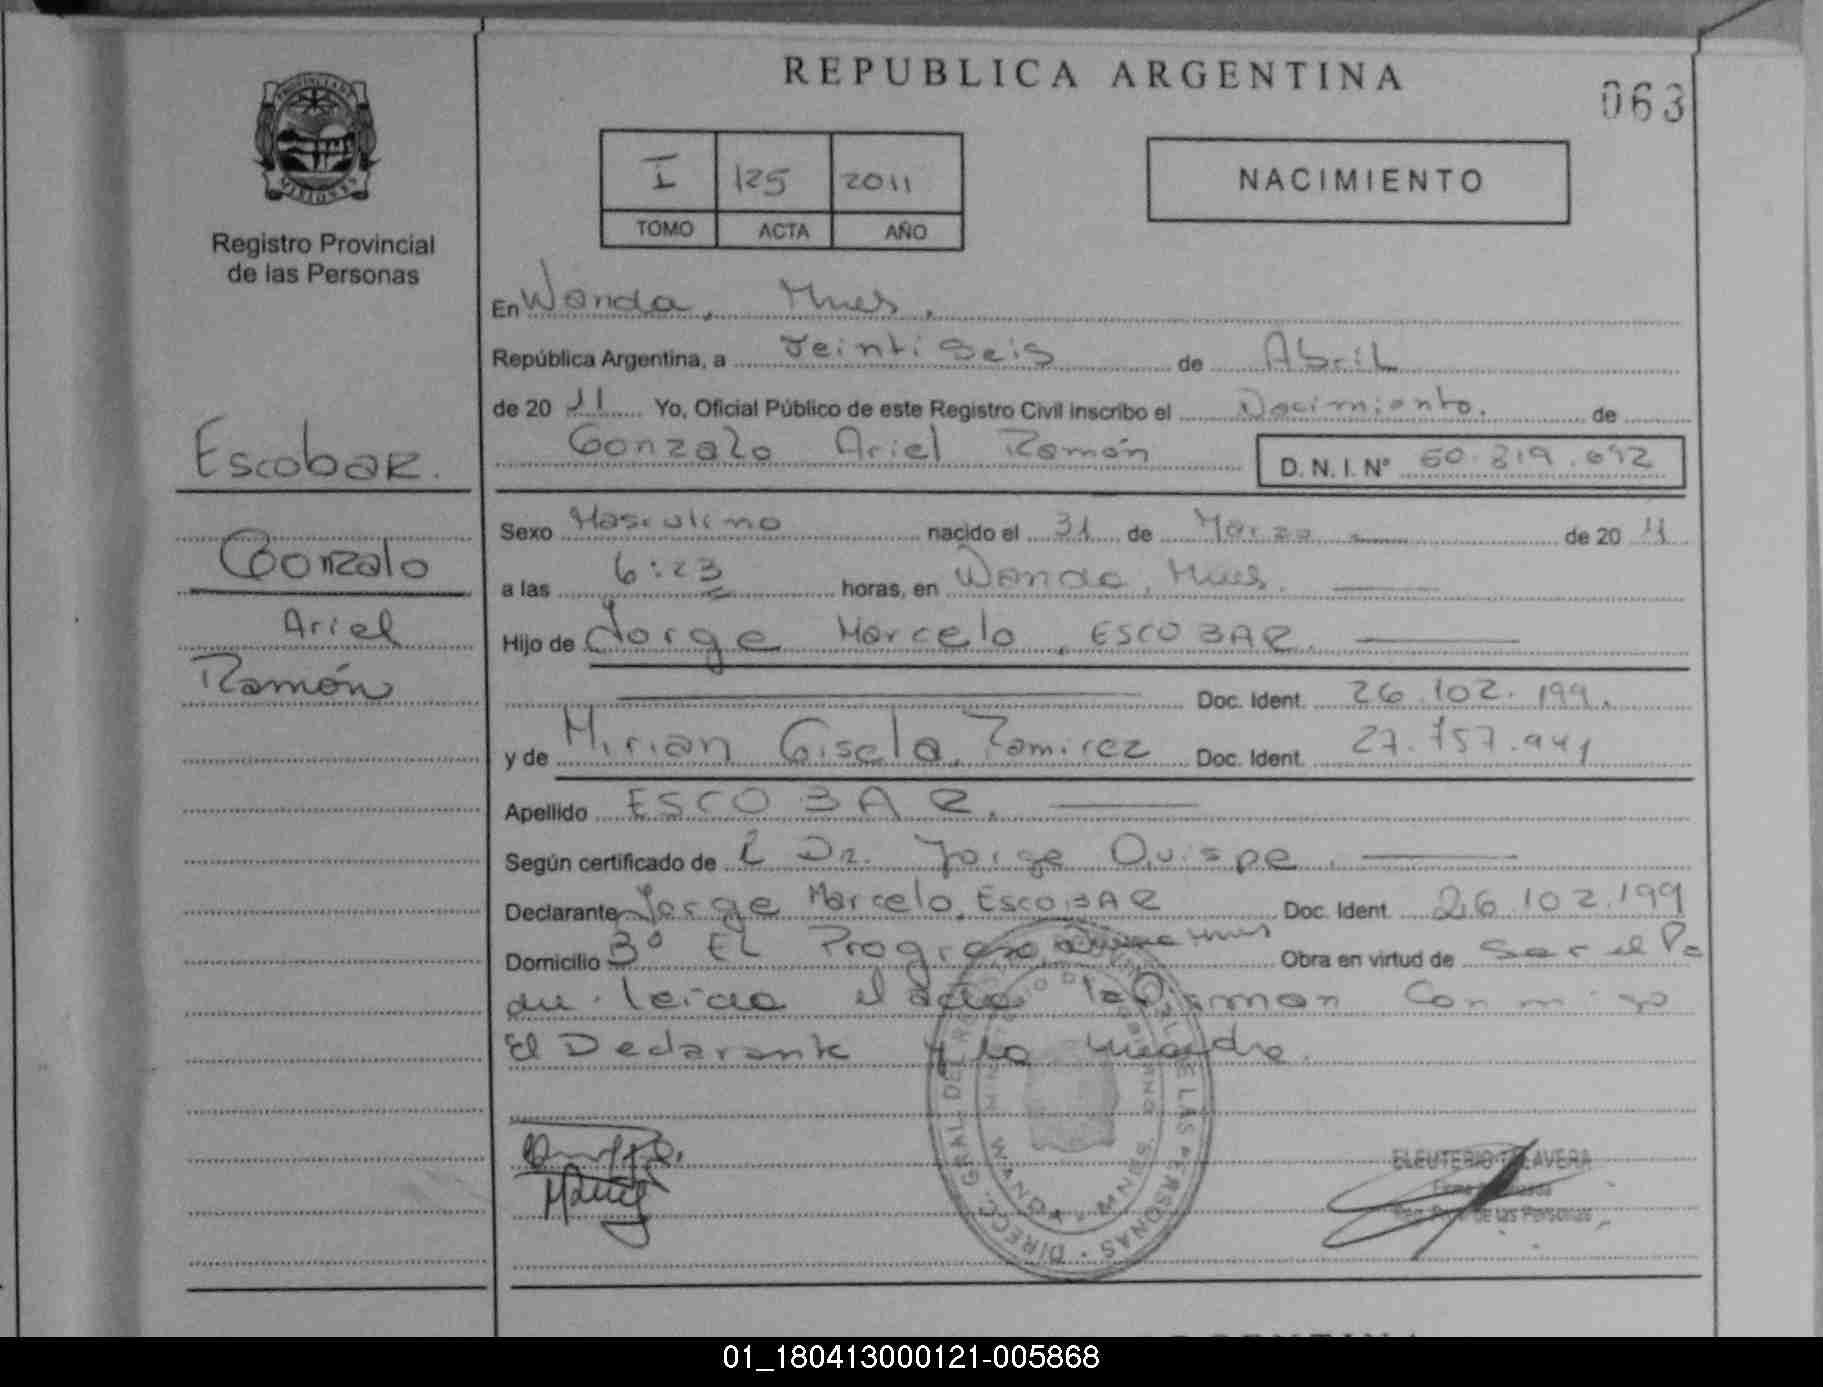 REPUBLICA ARGENTINA
063
PROVINCIA DE MISIONES
Registro Provincial
de las Personas
I 125 2011
TOMO ACTA AÑO
NACIMIENTO
En Wanda, Mnes,
República Argentina, a Veinti Seis de Abril
de 20 11 Yo, Oficial Público de este Registro Civil inscribo el Nacimiento. de
Gonzalo Ariel Ramón D. N. I. Nº
Escobar.
Gonzalo
Ariel
Ramón
Sexo Masculino nacido el 31 de Marzo de 20 11
a las 6:23 horas, en Wanda, Mnes.
Hijo de Jorge Marcelo, ESCOBAR.
Doc. Ident. 26.102.199.
y de Mirian Gisela, Ramirez Doc. Ident. 27.757.941
Apellido ESCOBAR.
Según certificado de Dr. Jorge Quispe.
Declarante Jorge Marcelo, EscoBAR Doc. Ident. 26.102.199
Domicilio Bº El Progreso Mnes Obra en virtud de Ser el Pa
dre. leida el acta la firman Conmigo
El Declarante y la Madre.
DIRECC. GRAL. DEL REG. DE LAS PERSONAS
WANDA - MNES.
ELEUTERIO TALAVERA
Reg. Prov. de las Personas
01_180413000121-005868